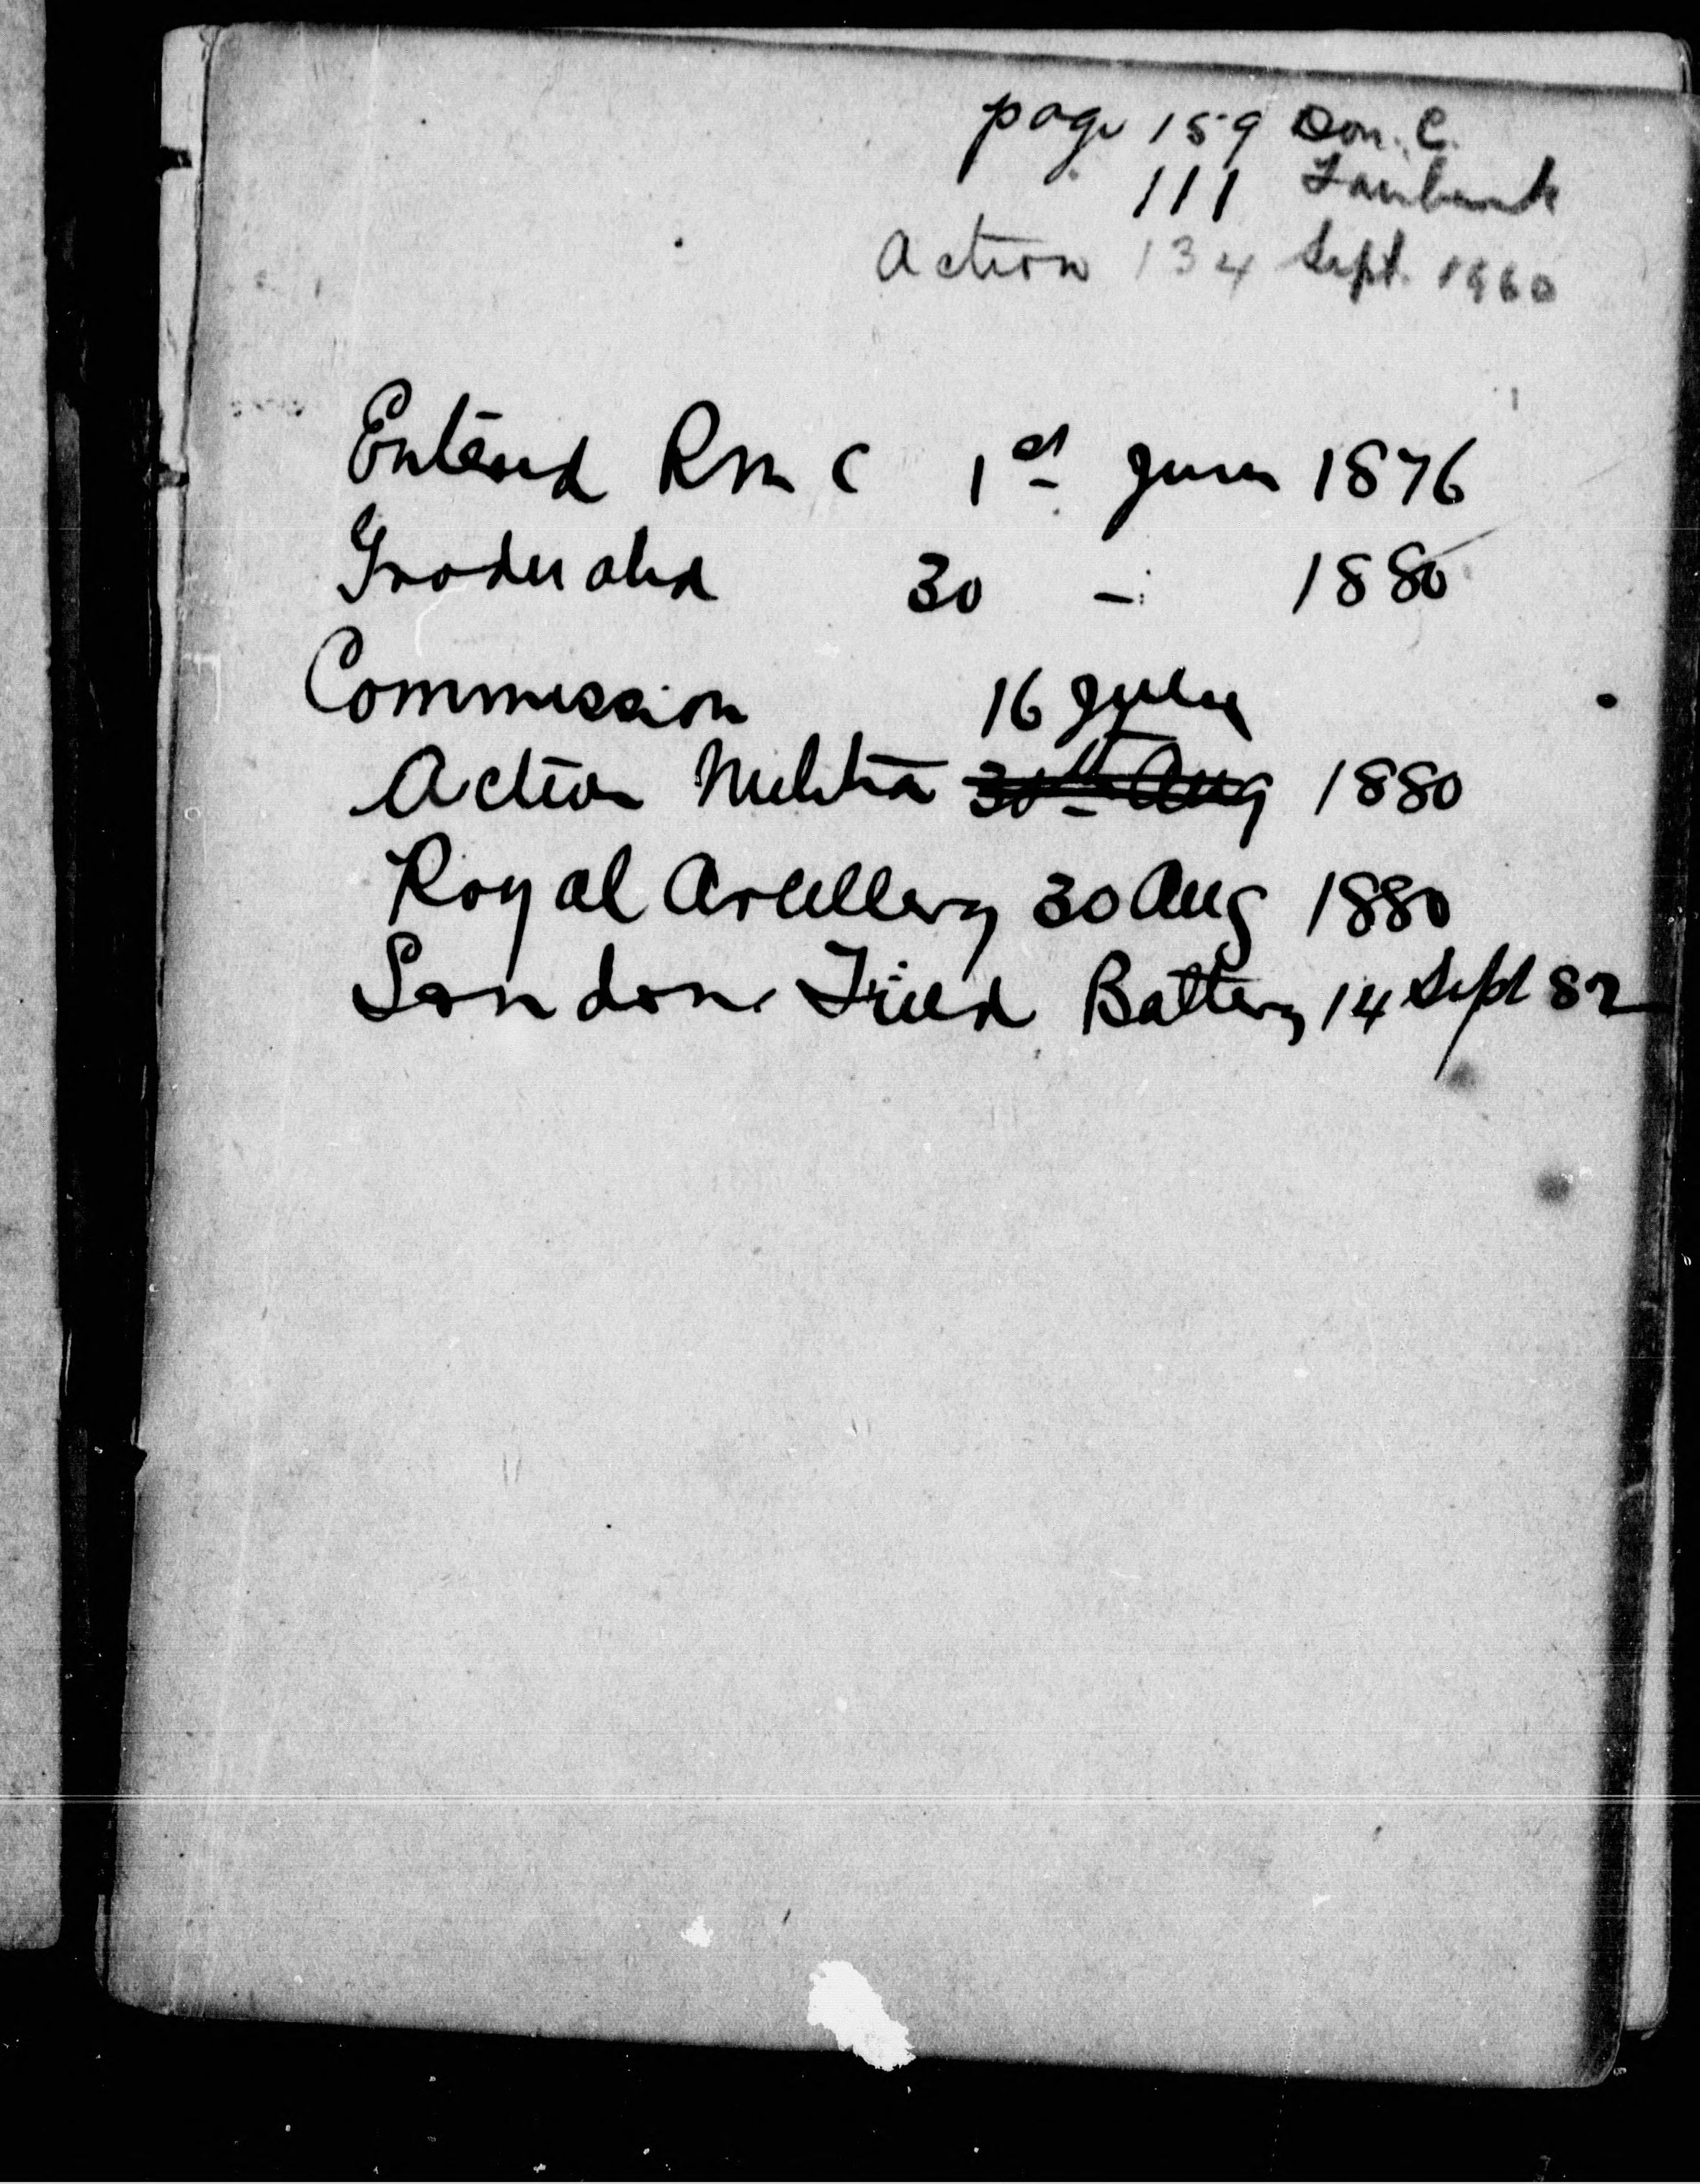 page 159 Don. C.
111 Fairbank
Action 134 Sept. 1960
Entered R M C 1st June 1876
Graduated 30 - 1880
Commission 16 July
Action Militia 30th Aug 1880
Royal Artillery 30 Aug 1880
London Field Battery 14 Sept 82